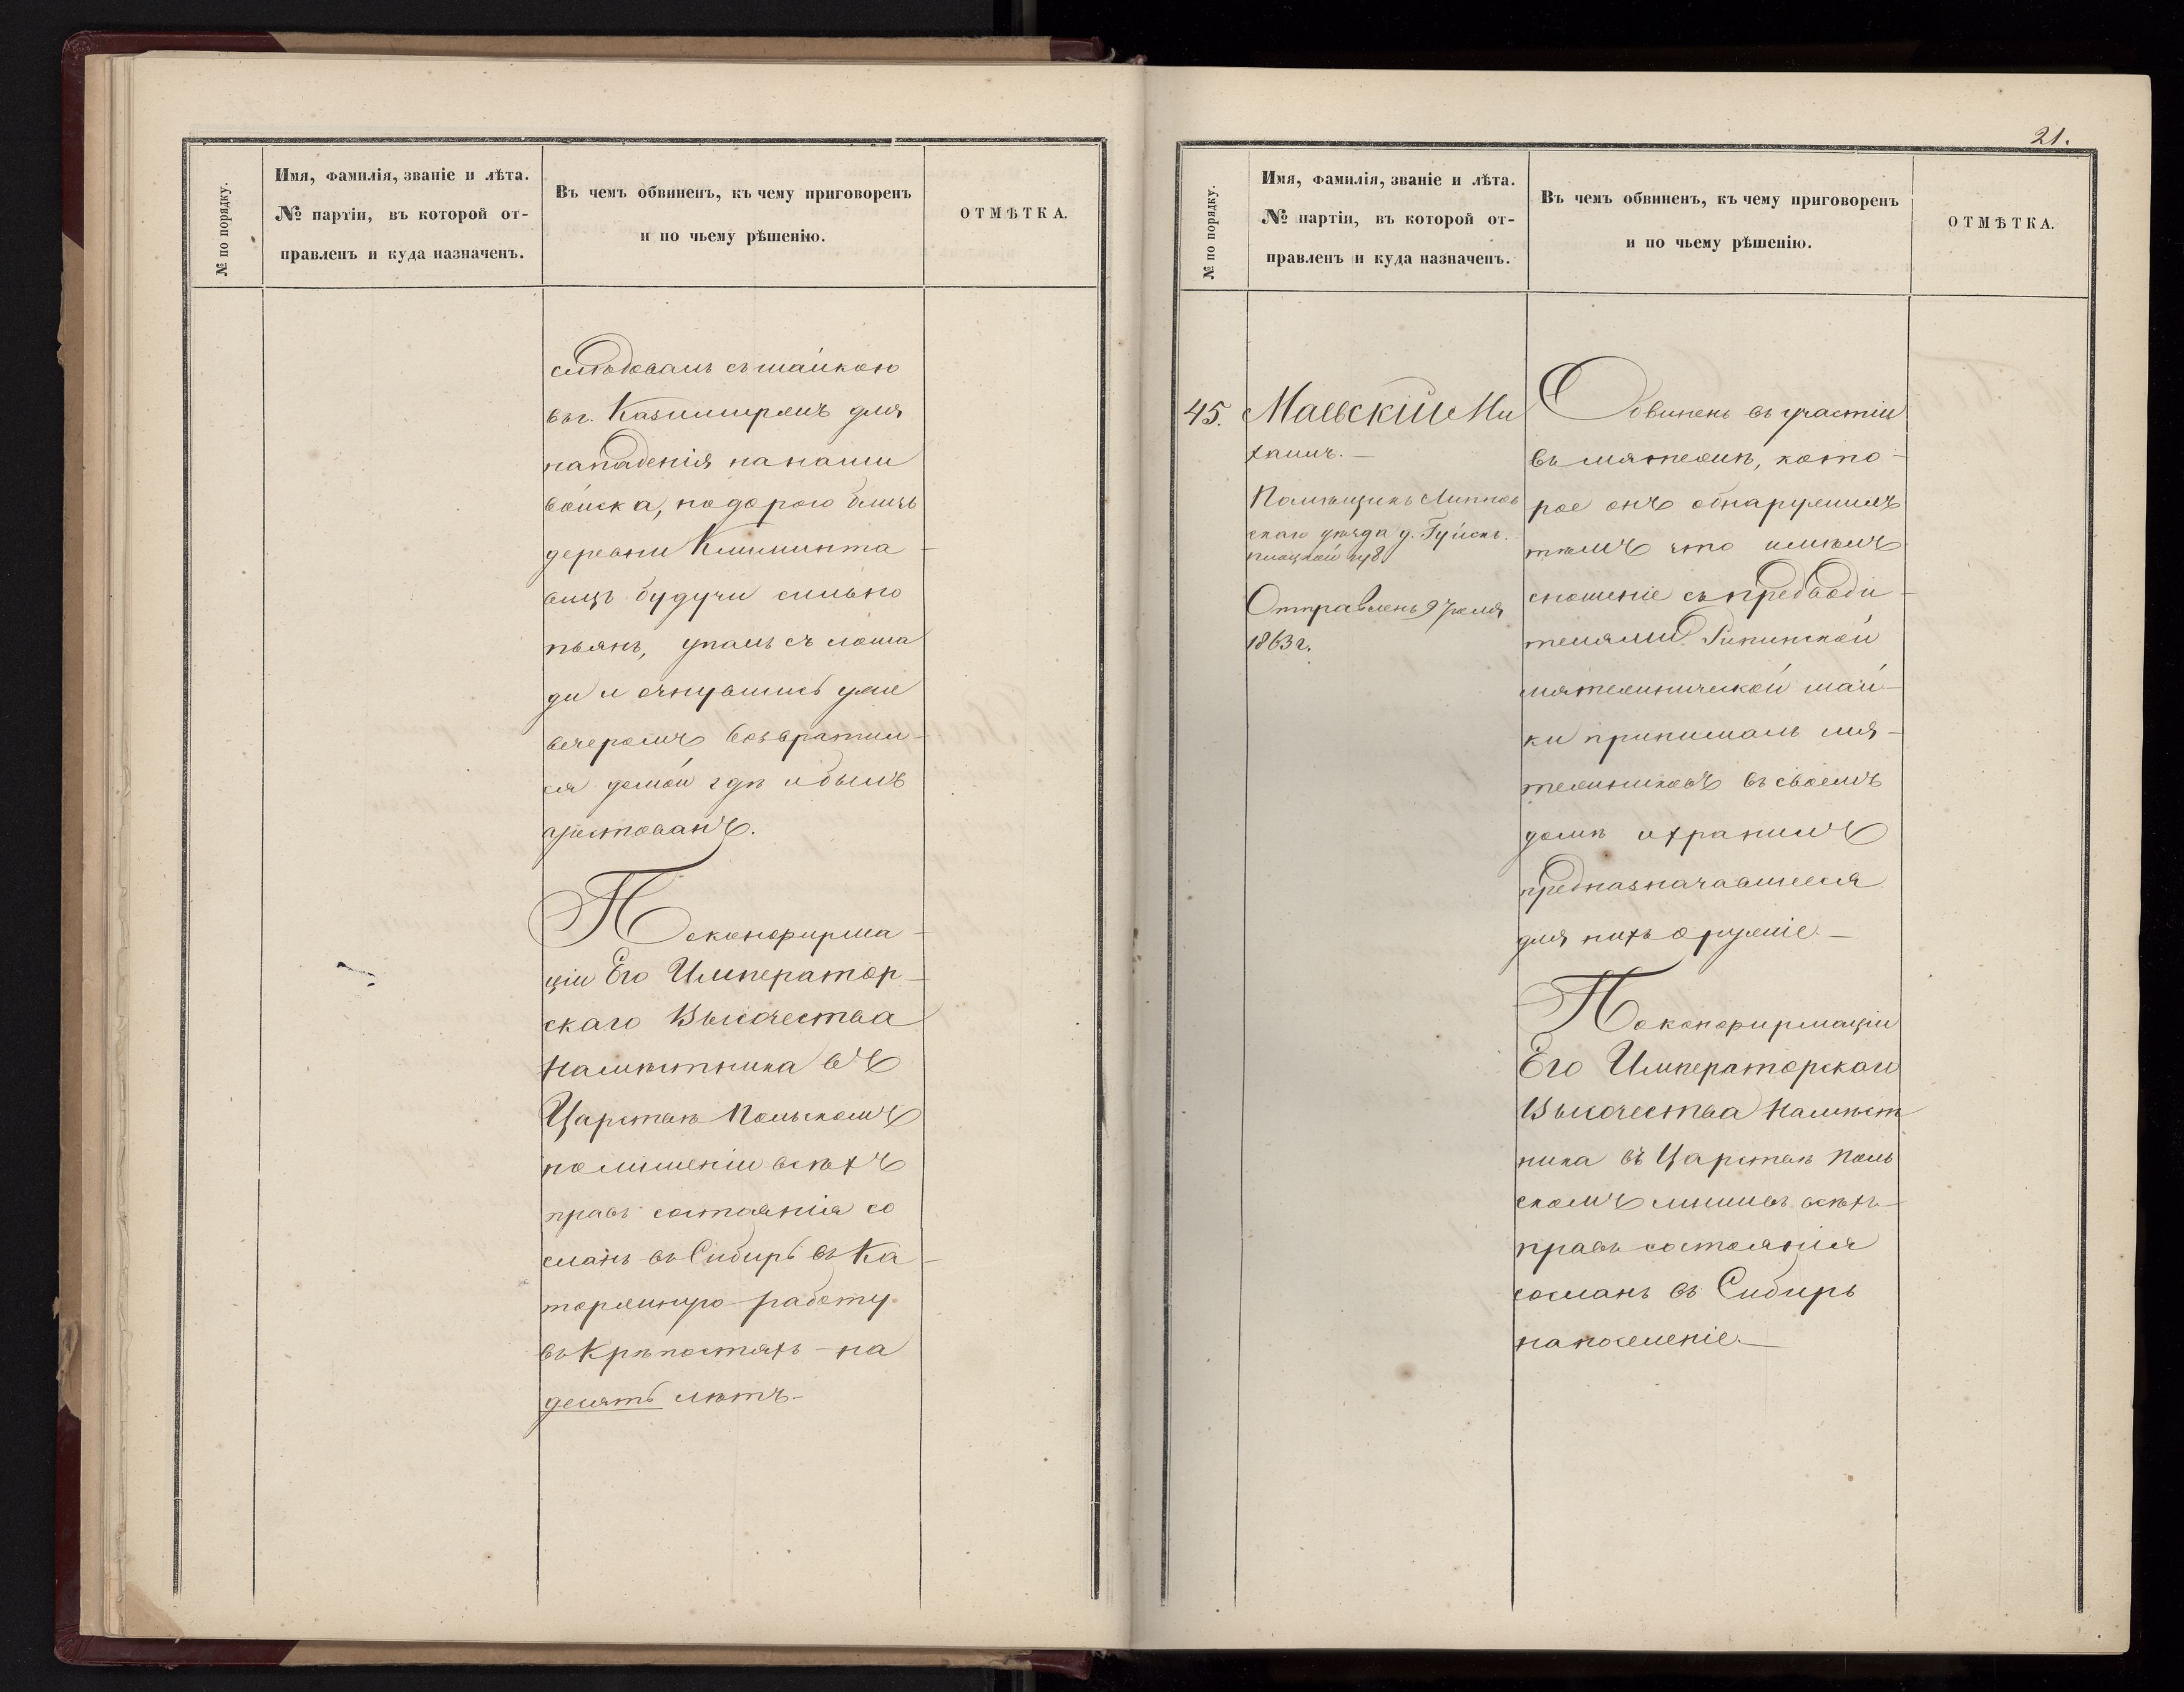 № по порядку.
Имя, фамилія, званіе и лѣта.
№ партіи, въ которой от-
правленъ и куда назначенъ.
Въ чемъ обвиненъ, къ чему приговоренъ
и по чьему рѣшенію.
ОТМѢТКА.
слѣдовалъ съ шайкою
въ г. Казимиржъ для
нападенія на наши
войска, но дорогою близь
деревни
будучи сильно
пьянъ, упалъ съ лоша
ди и очнувшись уже
вечеромъ возвратил-
ся домой гдѣ и былъ
арестованъ.
По конфирма-
ціи Его Император-
скаго Высочества
Намѣстника въ
Царствѣ Польскомъ
по лишеніи всѣхъ
правъ состоянія со
сланъ въ Сибирь въ Ка-
торжную работу
въ Крѣпостяхъ на
десять лѣтъ.
21.
№ по порядку.
Имя, фамилія, званіе и лѣта.
№ партіи, въ которой от-
правленъ и куда назначенъ.
Въ чемъ обвиненъ, къ чему приговоренъ
и по чьему рѣшенію.
ОТМѢТКА.
45. Маевскій Ми
хаилъ.—
Помѣщикъ Липнов
скаго уѣзда д.
плоцкой губ.
Отправленъ 9 Іюля
1863 г.
Обвиненъ въ участіи
въ мятежѣ, кото-
рое онъ обнаружилъ
тѣмъ что имѣлъ
сношеніе съ предводи-
телями Рипинской
мятежнической шай-
ки принималъ мя-
тежниковъ въ своемъ
домѣ и хранилъ
предназначавшееся
для нихъ оружіе.—
По конфирмаціи
Его Императорскаго
Высочества Намѣст
ника въ Царствѣ Поль
скомъ лишивъ всѣхъ
правъ состоянія
сосланъ въ Сибирь
на поселеніе.—